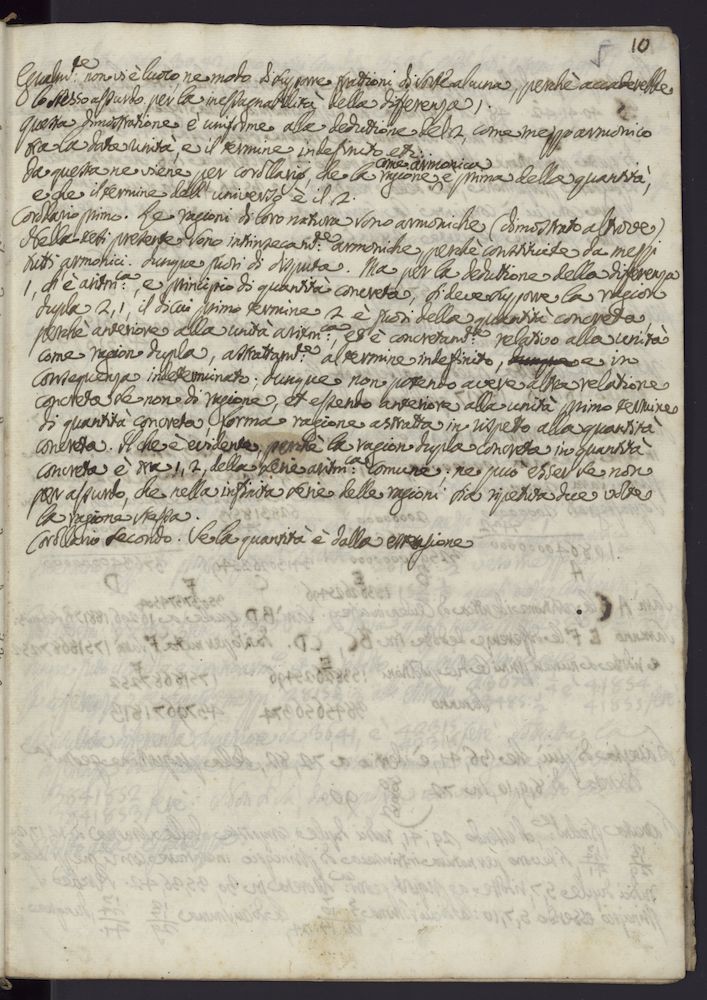 10
Egualm.te non vi è luoco ne modo di supporre frattioni di sorte alcuna, perchè accaderebbe
lo stesso assurdo per la inespugnabilità della differenza 1.
Questa dimostratione è uniforme alla dedutione del 2, come mezzo armonico
tra la data unità, e il termine indefinito etc.
Da questa ne viene per corollario, che la ragione come armonica è prima della quantità,
e che il termine dell'universo è il 2.
Corollario primo. Le ragioni di loro natura sono armoniche (dimostrato altrove)
Nella tesi presente sono intrinsecam.te armoniche perchè constituite da mezzi
tutti armonici. Dunque fuori di disputa. Ma per la dedutione della differenza
1, ch'è aritm.ca, e principio di quantità concreta, si deve supporre la ragion
dupla 2,1, il di cui primo termine 2 è fuori della quantità concreta
perchè anteriore alla unità aritm.ca, et è concretam.te relativo alla unità
come ragion dupla, astrattam.te al termine indefinito, dunque e in
consequenza indeterminato. Dunque non potendo avere altra relatione
concreta se non di ragione, et essendo anteriore alla unità primo termine
di quantità concreta, forma ragione astratta in rispetto alla quantità
concreta. Il che è evidente, perchè la ragion dupla concreta in quantità
concreta è tra 1, 2, della serie aritm.ca comune; ne può esser se non
per assurdo, che nella infinita serie delle ragioni sia ripetita due volte
la ragione stessa.
Corollario secondo. Se la quantità è dalla estensione